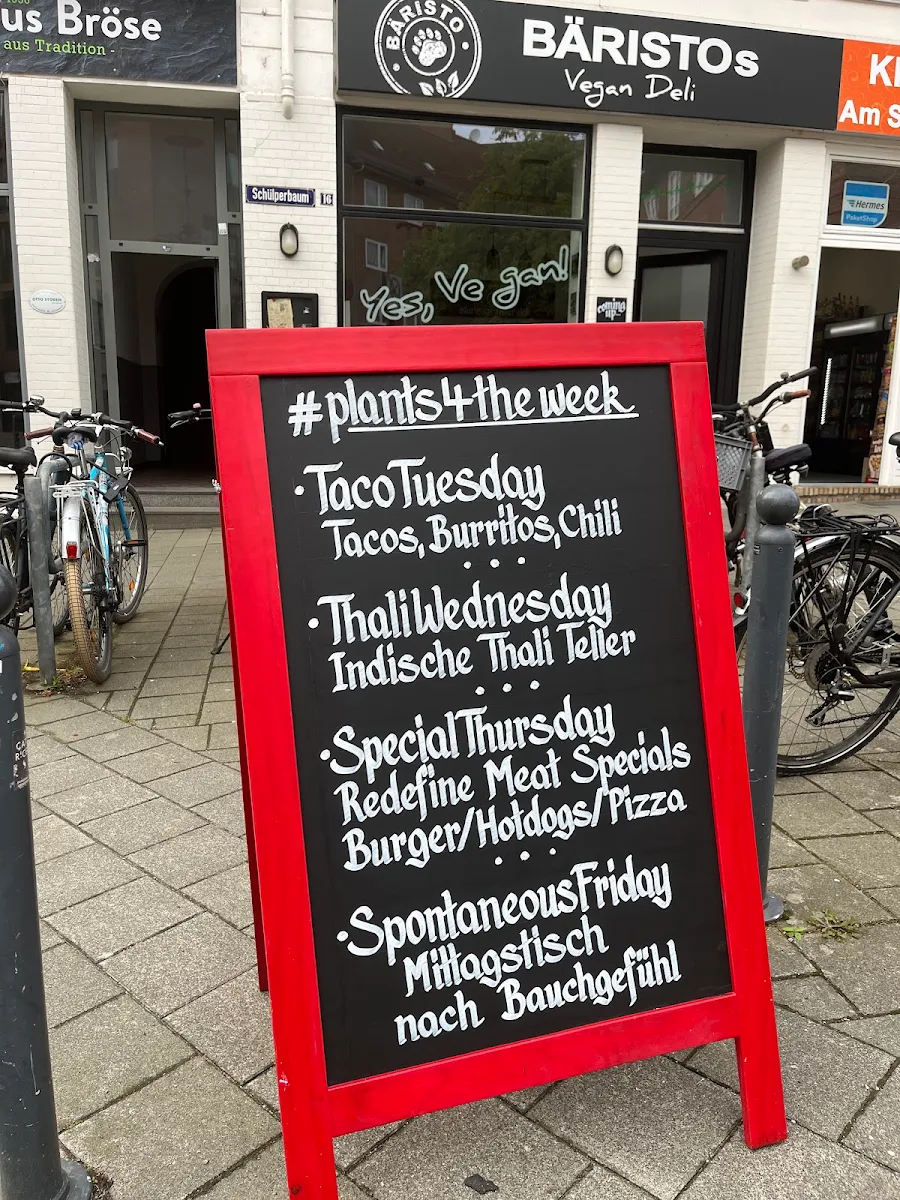 us Bröse
aus Tradition -
BÄRISTO
BÄRISTOs
Vegan Deli
Am S
Schülperbaum
16
Hermes
PaketShop
Yes, Ve gan!
coming
up...
#plants4theweek
· TacoTuesday
Tacos, Burritos, Chili
...
· ThaliWednesday
Indische Thali Teller
...
· SpecialThursday
Redefine Meat Specials
Burger/Hotdogs/Pizza
...
· SpontaneousFriday
Mittagstisch
nach Bauchgefühl